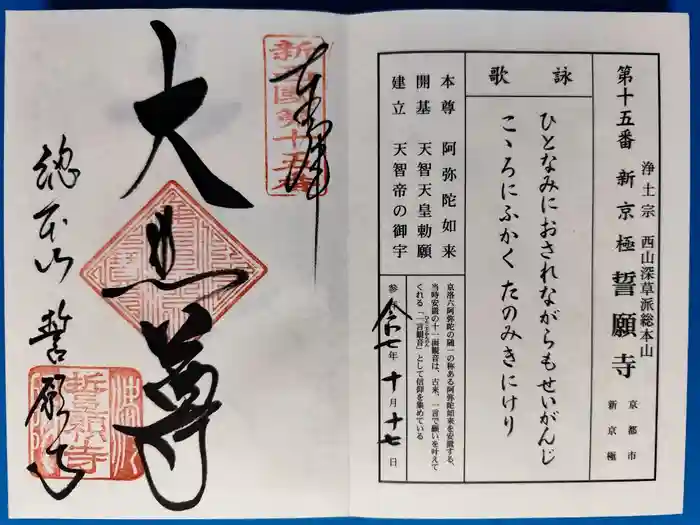 浄土宗 西山深草派総本山
第十五番 新京極 誓願寺
京都市
新京極
詠歌
ひとなみにおされながらもせいがんじ
こゝろにふかくたのみきにけり
本尊 阿弥陀如来
開基 天智天皇勅願
建立 天智帝の御宇
京洛六阿弥陀の随一の称ある阿弥陀如来を安置する、
当時安置の十一面観音は、古来、一言で願いを叶えて
くれる「一言観音」として信仰を集めている
ひとことかんのん
令和七年 十月 十七日
奉拝
大悲尊
総本山 誓願寺
誓願寺